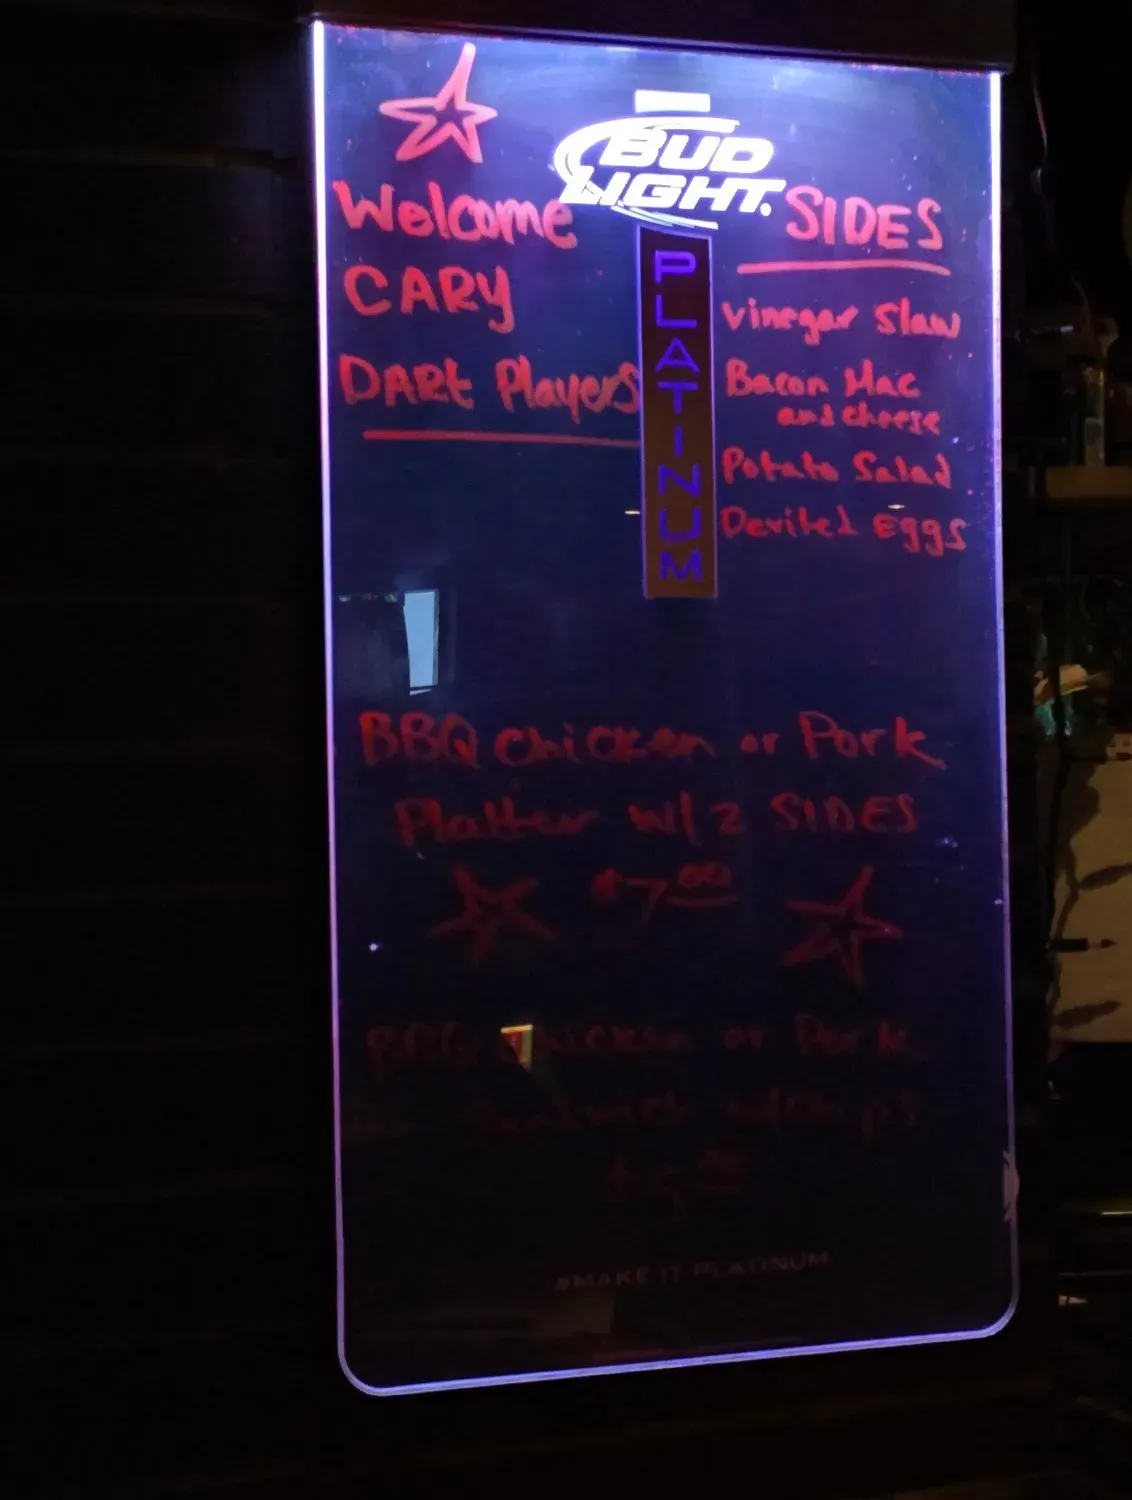 BUD
LIGHT.
PLATINUM
Welcome
CARY
DART Players
SIDES
Vinegar Slaw
Bacon Mac
and cheese
Potato Salad
Deviled Eggs
BBQ Chicken or Pork
Platter w/ 2 SIDES
$7.00
BBQ Chicken or Pork
Sandwich w/chips
#MAKE IT PLATINUM